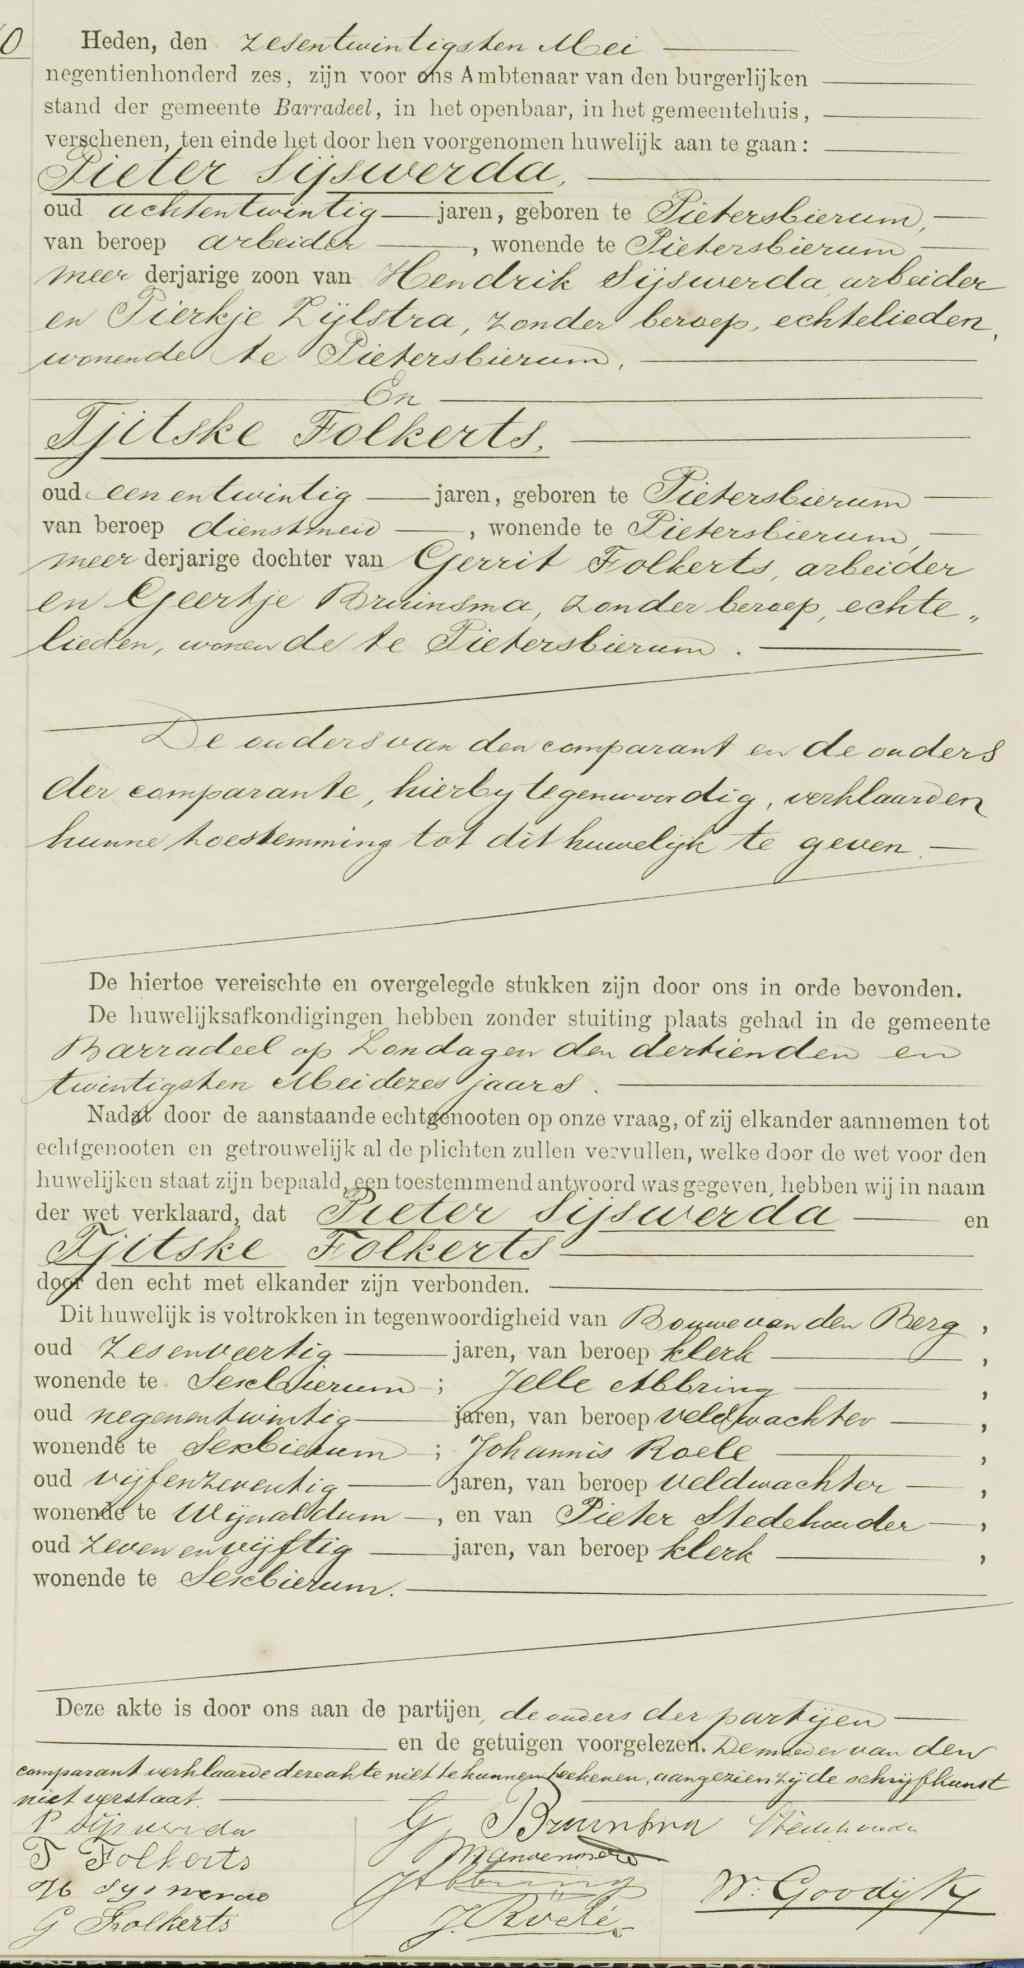 Heden, den zesentwintigsten Mei
negentienhonderd zes, zijn voor ons Ambtenaar van den burgerlijken
stand der gemeente Barradeel, in het openbaar, in het gemeentehuis,
verschenen, ten einde het door hen voorgenomen huwelijk aan te gaan:
Pieter Sijswerda,
oud achtentwintig jaren, geboren te Pietersbierum,
van beroep arbeider, wonende te Pietersbierum
meer derjarige zoon van Hendrik Sijswerda arbeider
en Pierkje Zijlstra, zonder beroep, echtelieden,
wonende te Pietersbierum.
En
Tjitske Folkerts,
oud eenentwintig jaren, geboren te Pietersbierum
van beroep dienstmeid, wonende te Pietersbierum,
meer derjarige dochter van Gerrit Folkerts, arbeider
en Geertje Bruinsma, zonder beroep, echte„
lieden, wonende te Pietersbierum.
De ouders van den comparant en de ouders
der comparante, hierbij tegenwoordig, verklaarden
hunne toestemming tot dit huwelijk te geven.
De hiertoe vereischte en overgelegde stukken zijn door ons in orde bevonden.
De huwelijksafkondigingen hebben zonder stuiting plaats gehad in de gemeente
Barradeel op Zondagen den dertienden en
twintigsten Mei dezes jaars.
Nadat door de aanstaande echtgenooten op onze vraag, of zij elkander aannemen tot
echtgenooten en getrouwelijk al de plichten zullen vervullen, welke door de wet voor den
huwelijken staat zijn bepaald, een toestemmend antwoord was gegeven, hebben wij in naam
der wet verklaard, dat Pieter Sijswerda en
Tjitske Folkerts
door den echt met elkander zijn verbonden.
Dit huwelijk is voltrokken in tegenwoordigheid van Bouwe van den Berg,
oud zesenveertig jaren, van beroep klerk,
wonende te Sexbierum; Jelle Abbring,
oud negenentwintig jaren, van beroep veldwachter,
wonende te Sexbierum; Johannis Roele,
oud vijfenzeventig jaren, van beroep veldwachter,
wonende te Wijnaldum, en van Pieter Stedehouder,
oud zevenenvijftig jaren, van beroep klerk,
wonende te Sexbierum.
Deze akte is door ons aan de partijen, de ouders der partijen
en de getuigen voorgelezen. De moeder van den
comparant verklaarde deze akte niet te kunnen teekenen, aangezien zij de schrijfkunst
niet verstaat.
P Sijswerda
T Folkerts
H Sijswerda
G Folkerts
G, Bruinsma
JAbbring
J. Roele
Stedehouder
W: Goodijk